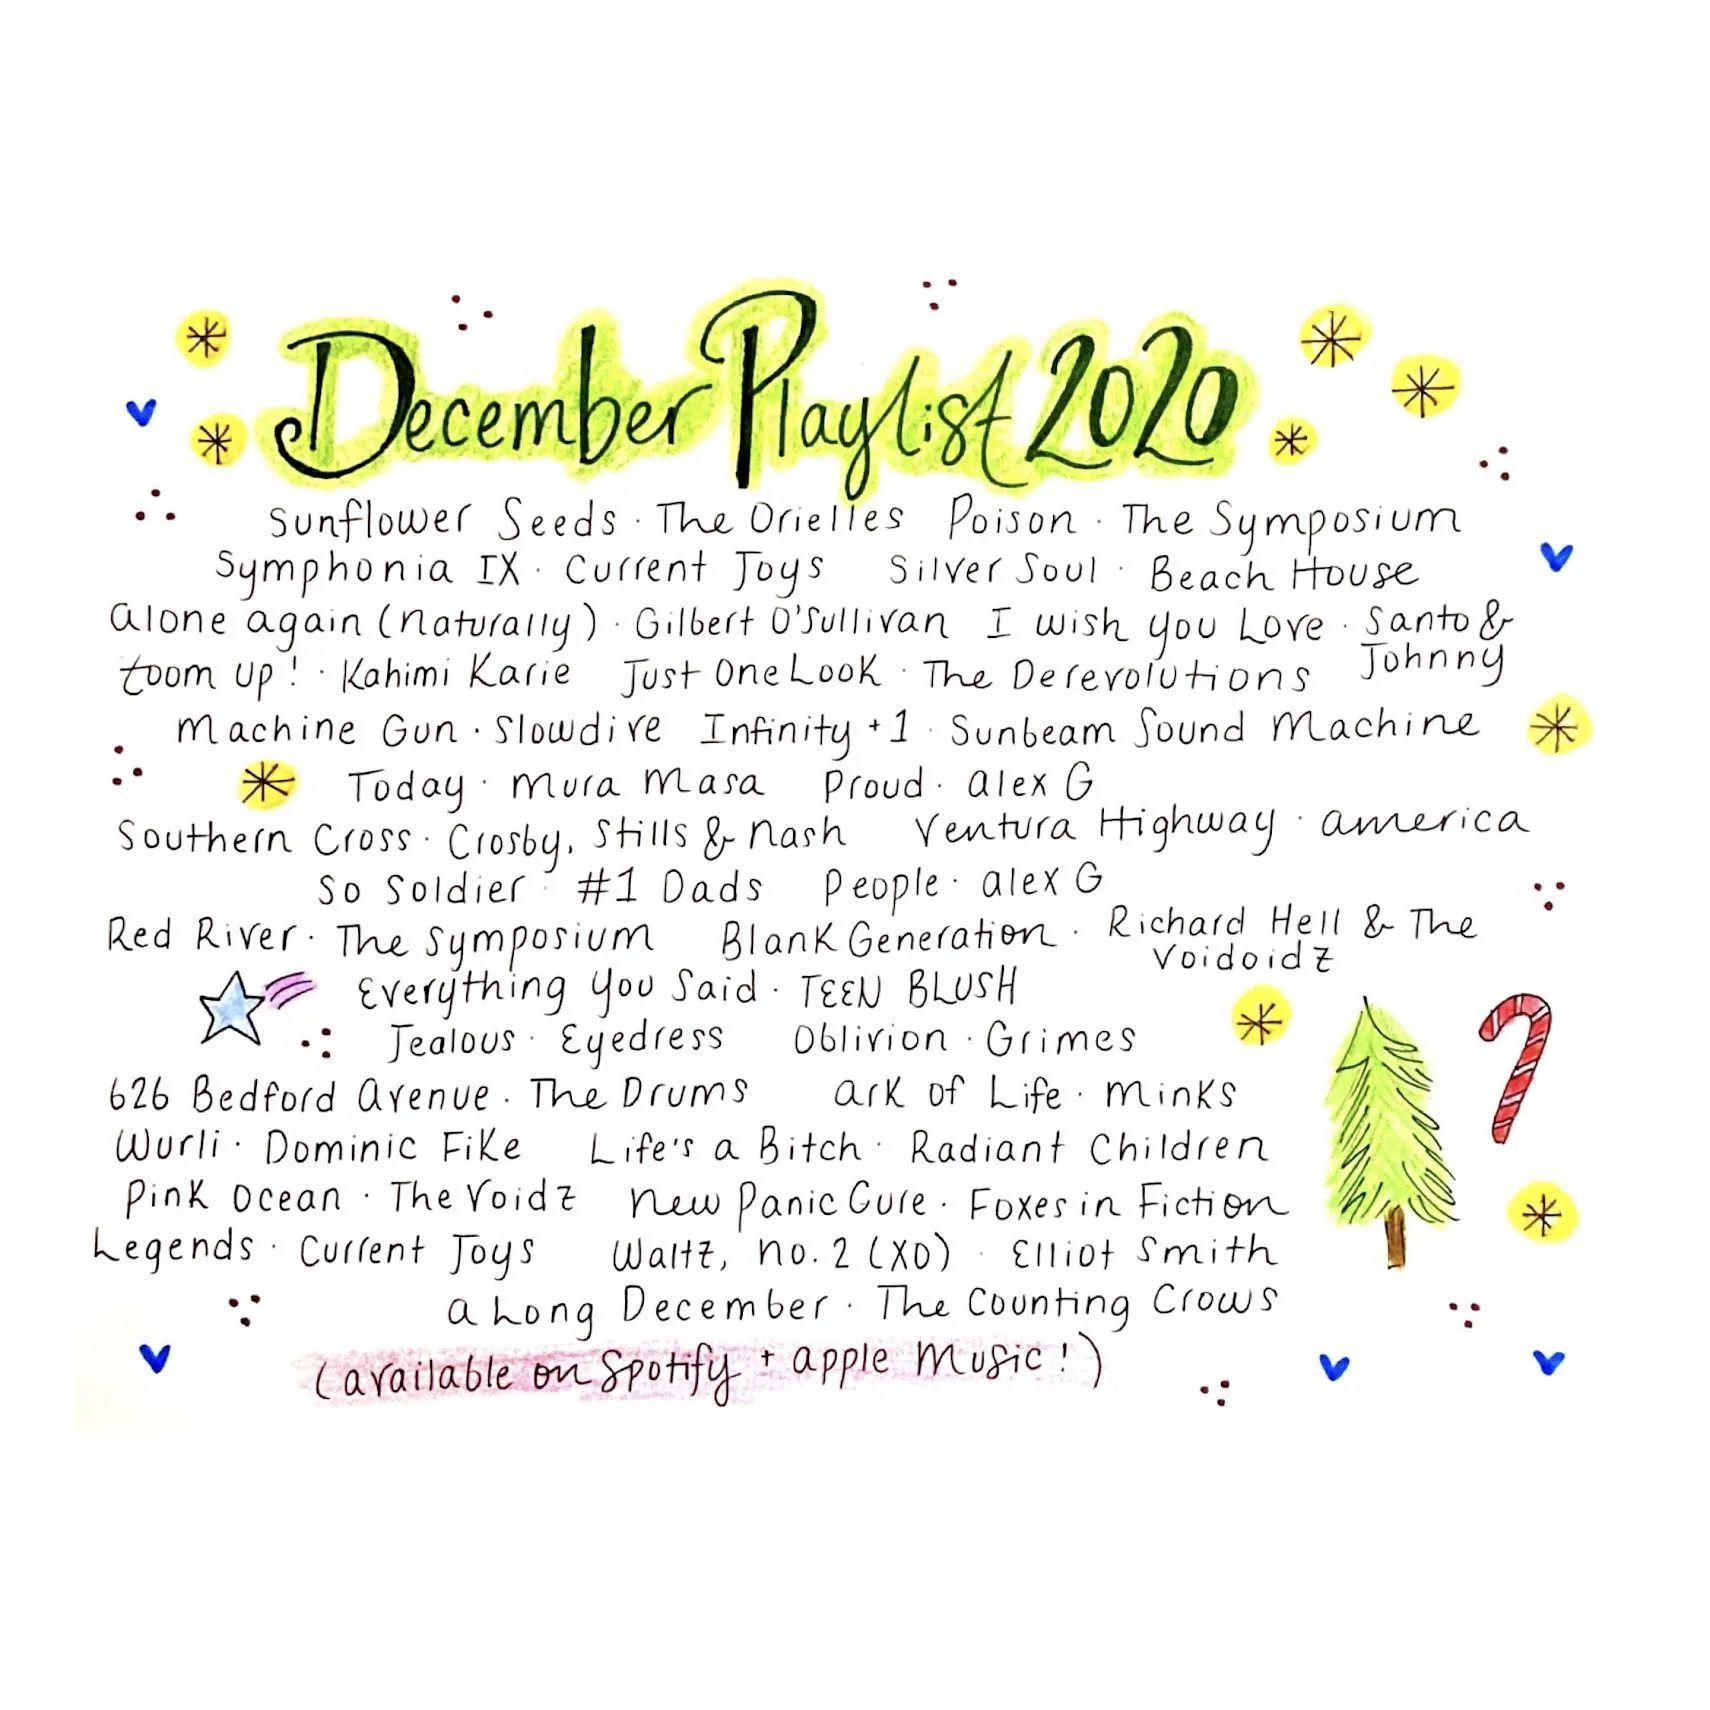 December Playlist 2020
Sunflower Seeds · The Orielles Poison · The Symposium
Symphonia IX · Current Joys Silver Soul · Beach House
alone again (naturally) · Gilbert O'Sullivan I wish you Love · Santo &
Johnny
zoom up! · Kahimi Karie Just One Look · The Derevolutions
Machine Gun · Slowdive Infinity +1 · Sunbeam Sound Machine
Today · Mura Masa Proud · alex G
Southern Cross · Crosby, Stills & Nash Ventura Highway · america
So Soldier · #1 Dads People · alex G
Red River · The Symposium Blank Generation · Richard Hell & The
Voidoidz
Everything You Said · TEEN BLUSH
Jealous · Eyedress Oblivion · Grimes
626 Bedford Avenue · The Drums ark of Life · Minks
Wurli · Dominic Fike Life's a Bitch · Radiant Children
Pink Ocean · The Voidz New Panic Cure · Foxes in Fiction
Legends · Current Joys Waltz, no. 2 (XO) · Elliot Smith
a Long December · The Counting Crows
(available on Spotify + apple Music!)